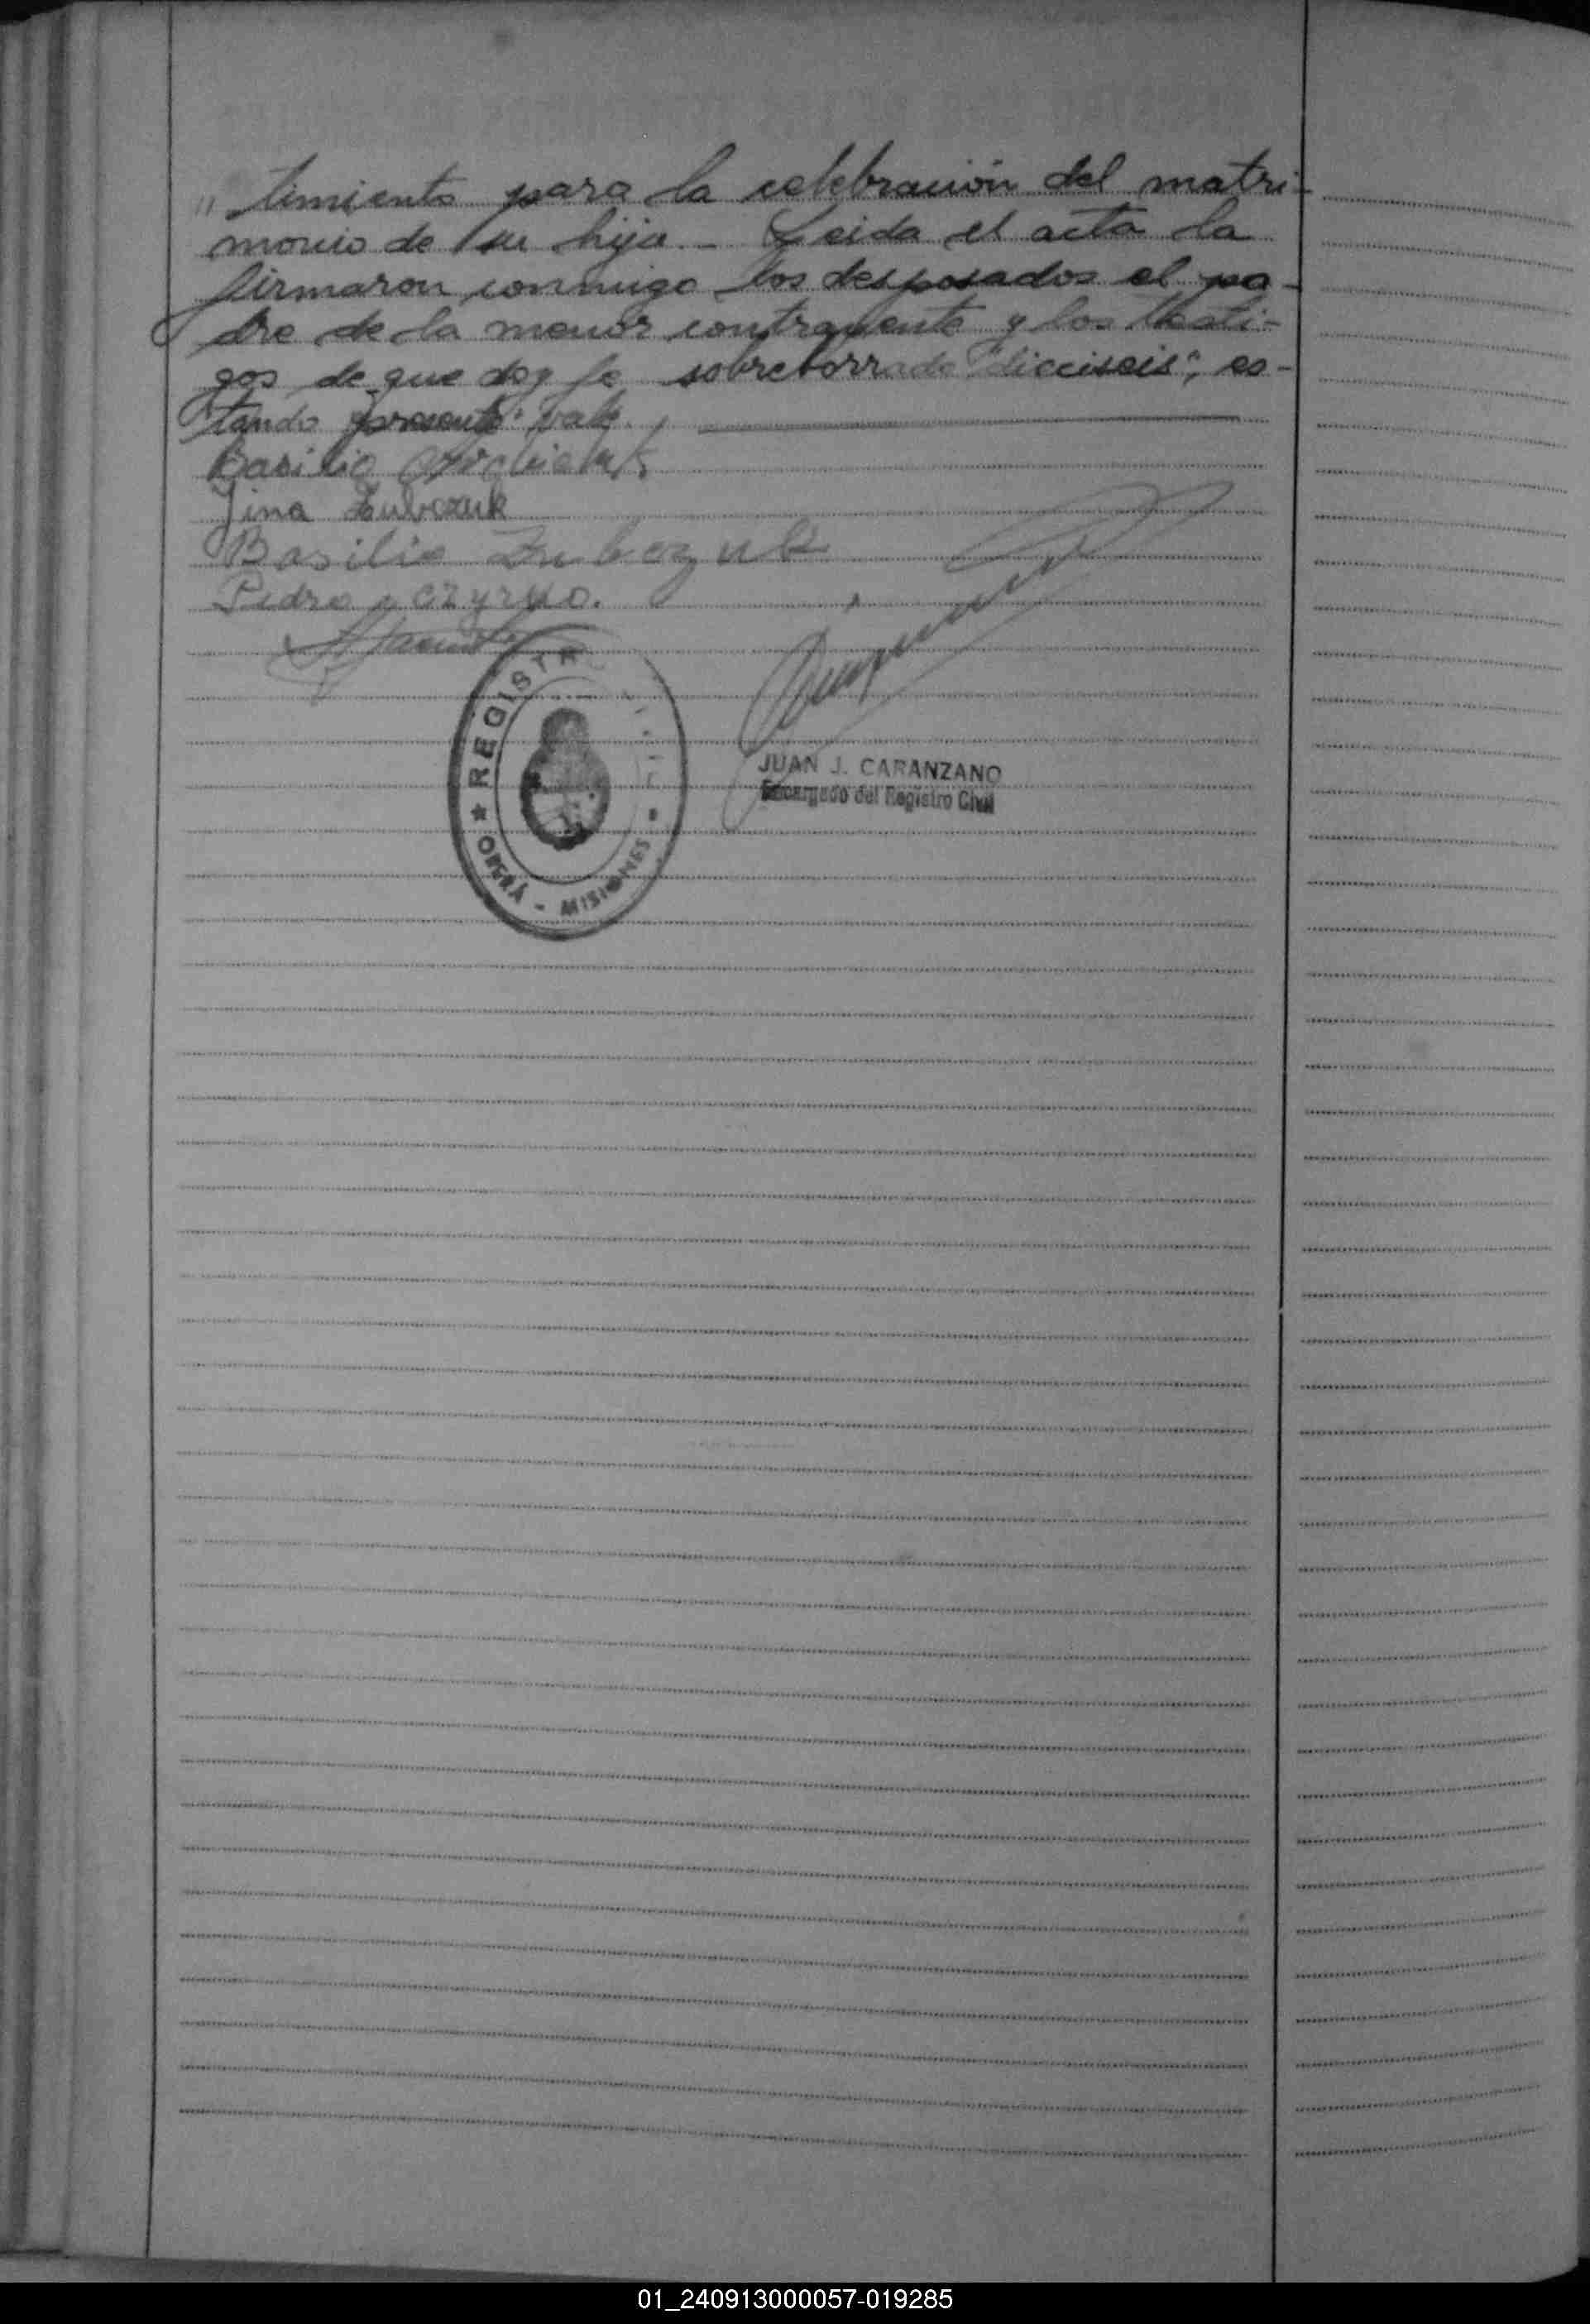 " timiento para la celebración del matri-
monio de su hija. - Leida el acta la
firmaron conmigo los desposados el pa-
dre de la menor contrayente y los testi-
gos de que doy fe sobreborrado "dieciseis", es-
tando presente" vale.
Basilio
Jina Zubczuk
Basilio Zubczuk
Pedro
REGISTR
OBERÁ - MISIONES
JUAN J. CARANZANO
Encargado del Registro Civil
01_240913000057-019285